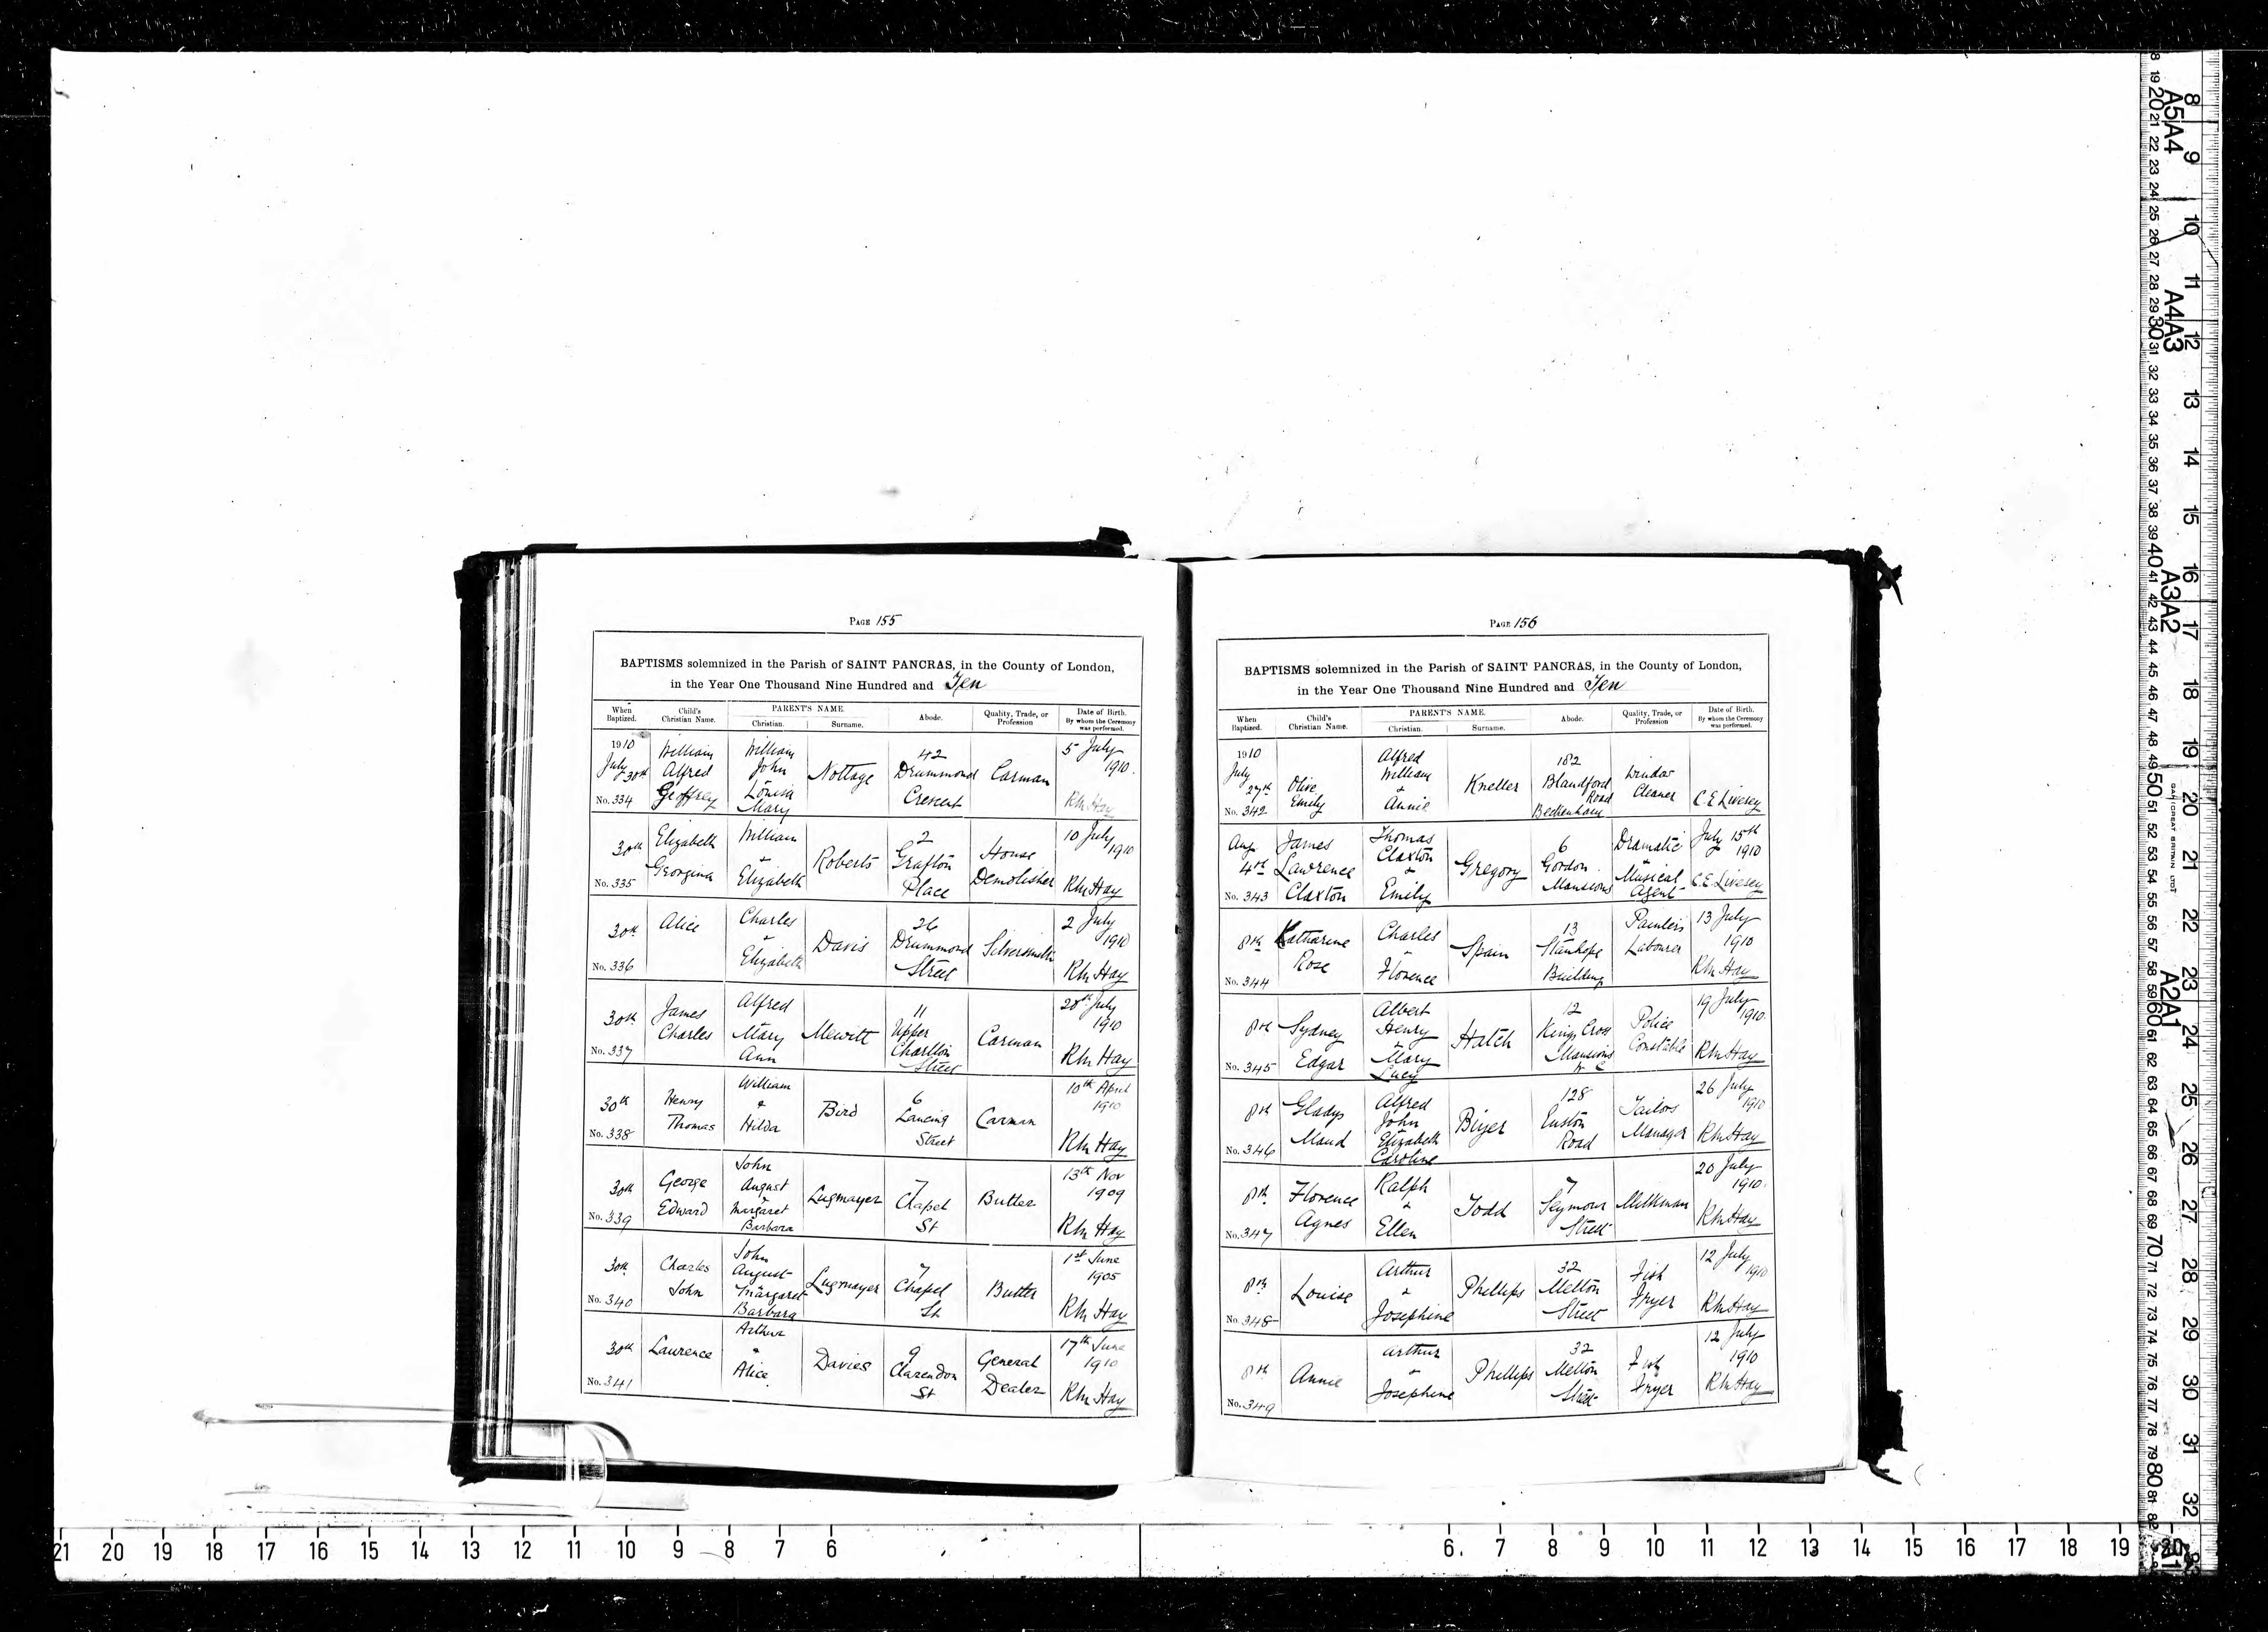 PAGE 155
BAPTISMS solemnized in the Parish of SAINT PANCRAS, in the County of London,
in the Year One Thousand Nine Hundred and Ten
When Baptized. Child's Christian Name. PARENT'S NAME. Christian. Surname. Abode. Quality, Trade, or Profession Date of Birth. By whom the Ceremony was performed.
1910 July 30th No. 334 William Alfred Geoffrey William John Louisa Mary Nottage 42 Drummond Crescent Carman 5 July 1910. Rh Hay
30th No. 335 Elizabeth Georgina William & Elizabeth Roberts 2 Grafton Place House Demolisher 10 July 1910 Rh Hay
30th No. 336 Alice Charles & Elizabeth Davis 26 Drummond Street Silversmith 2 July 1910 Rh Hay
30th No. 337 James Charles Alfred Mary Ann Mewitt 11 Upper Charlton Street Carman 20th July 1910 Rh Hay
30th No. 338 Henry Thomas William & Hilda Bird 6 Lancing Street Carman 10th April 1910 Rh Hay
30th No. 339 George Edward John August & Margaret Barbara Lugmayer 7 Chapel St Butler 13th Nov 1909 Rh Hay
30th No. 340 Charles John John August Margaret Barbara Lugmayer 7 Chapel St Butler 1st June 1905 Rh Hay
30th No. 341 Lawrence Arthur & Alice Davies 9 Clarendon St General Dealer 17th June 1910 Rh Hay
PAGE 156
BAPTISMS solemnized in the Parish of SAINT PANCRAS, in the County of London,
in the Year One Thousand Nine Hundred and Ten
When Baptized. Child's Christian Name. PARENT'S NAME. Christian. Surname. Abode. Quality, Trade, or Profession Date of Birth. By whom the Ceremony was performed.
1910 July 27th No. 342 Olive Emily Alfred William & Annie Kneller 182 Blandford Road Beckenham Window Cleaner C.E Livesey
Aug 4th No. 343 James Lawrence Claxton Thomas Claxton & Emily Gregory 6 Gordon Mansions Dramatic & Musical Agent July 15th 1910 C.E. Livesey
8th No. 344 Katharine Rose Charles & Florence Spain 13 Stanhope Building Painters Labourer 13 July 1910 Rh Hay
8th No. 345 Sydney Edgar Albert Henry & Mary Lucy Hatch 12 Kings Cross Mansions Police Constable 19 July 1910. Rh Hay
8th No. 346 Gladys Maud Alfred John Elizabeth Caroline 128 Euston Road Tailors Manager 26 July 1910 Rh Hay
8th No. 347 Florence Agnes Ralph & Ellen Todd 7 Seymour Street Milkman 20 July 1910. Rh Hay
8th No. 348 Louise Arthur & Josephine Phillips 32 Melton Street Fish Fryer 12 July 1910 Rh Hay
8th No. 349 Annie Arthur & Josephine Phillips 32 Melton Street Fish Fryer 12 July 1910 Rh Hay
21 20 19 18 17 16 15 14 13 12 11 10 9 8 7 6
6 7 8 9 10 11 12 13 14 15 16 17 18 19
8 9 10 11 12 13 14 15 16 17 18 19 20 21 22 23 24 25 26 27 28 29 30 31 32
A5 A4
A4 A3
A3 A2
A2 A1